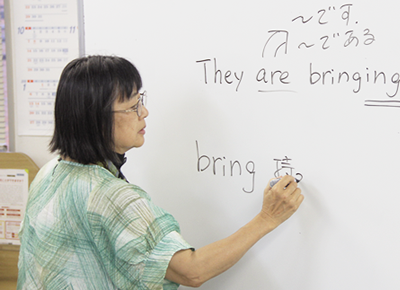 〜です.
〜である
They are bringing
bring